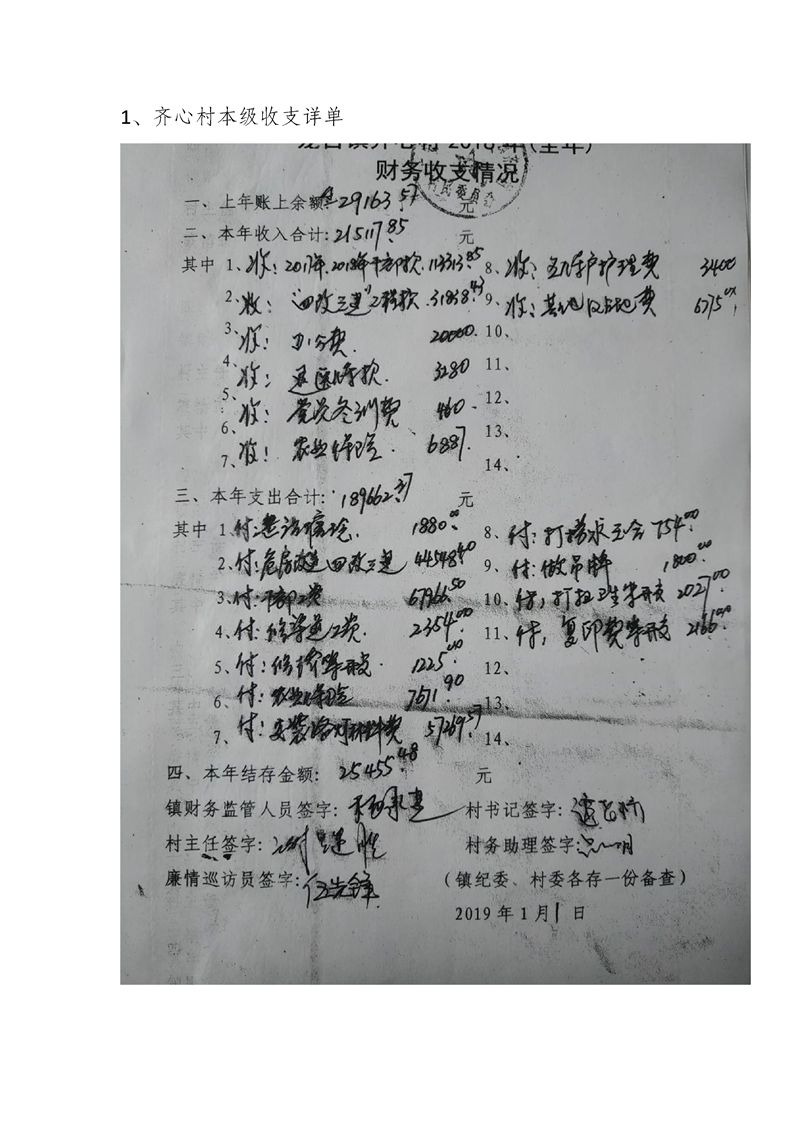 1、齐心村本级收支详单
财务收支情况
一、上年账上余额: 29163.57 元
二、本年收入合计: 215117.85 元
其中 1、收: 2017年.2018年干部款. 113313.85 8、收: 五保户护理费 3400
2、收: "四改三建"工程款. 31838.43 9、收: 基地占地费
3、收: 办公费. 20000. 10、
4、收: 款. 3280 11、
5、收: 党员冬训费 460. 12、
6、收: 农业保险. 6887. 13、
7、 14、
三、本年支出合计: 189662.37 元
其中 1、付: 1880.00 8、付: 754.00
2、付: 危房改造四改三建 44548.40 9、付: 做吊牌 1800.00
3、付: 干部工资 67966.50 10、付: 打扫卫生等开支 2027.00
4、付: 修渠道工资. 2354.00 11、付: 复印费等开支 2166.00
5、付: 等开支 1225.00 12、
6、付: 农业保险 7671.90 13、
7、付: 安装路灯材料费 57269.57 14、
四、本年结存金额: 25455.48 元
镇财务监管人员签字: 村书记签字:
村主任签字: 村务助理签字:
廉情巡访员签字: 伍先锋 (镇纪委、村委各存一份备查)
2019 年 1月 1 日